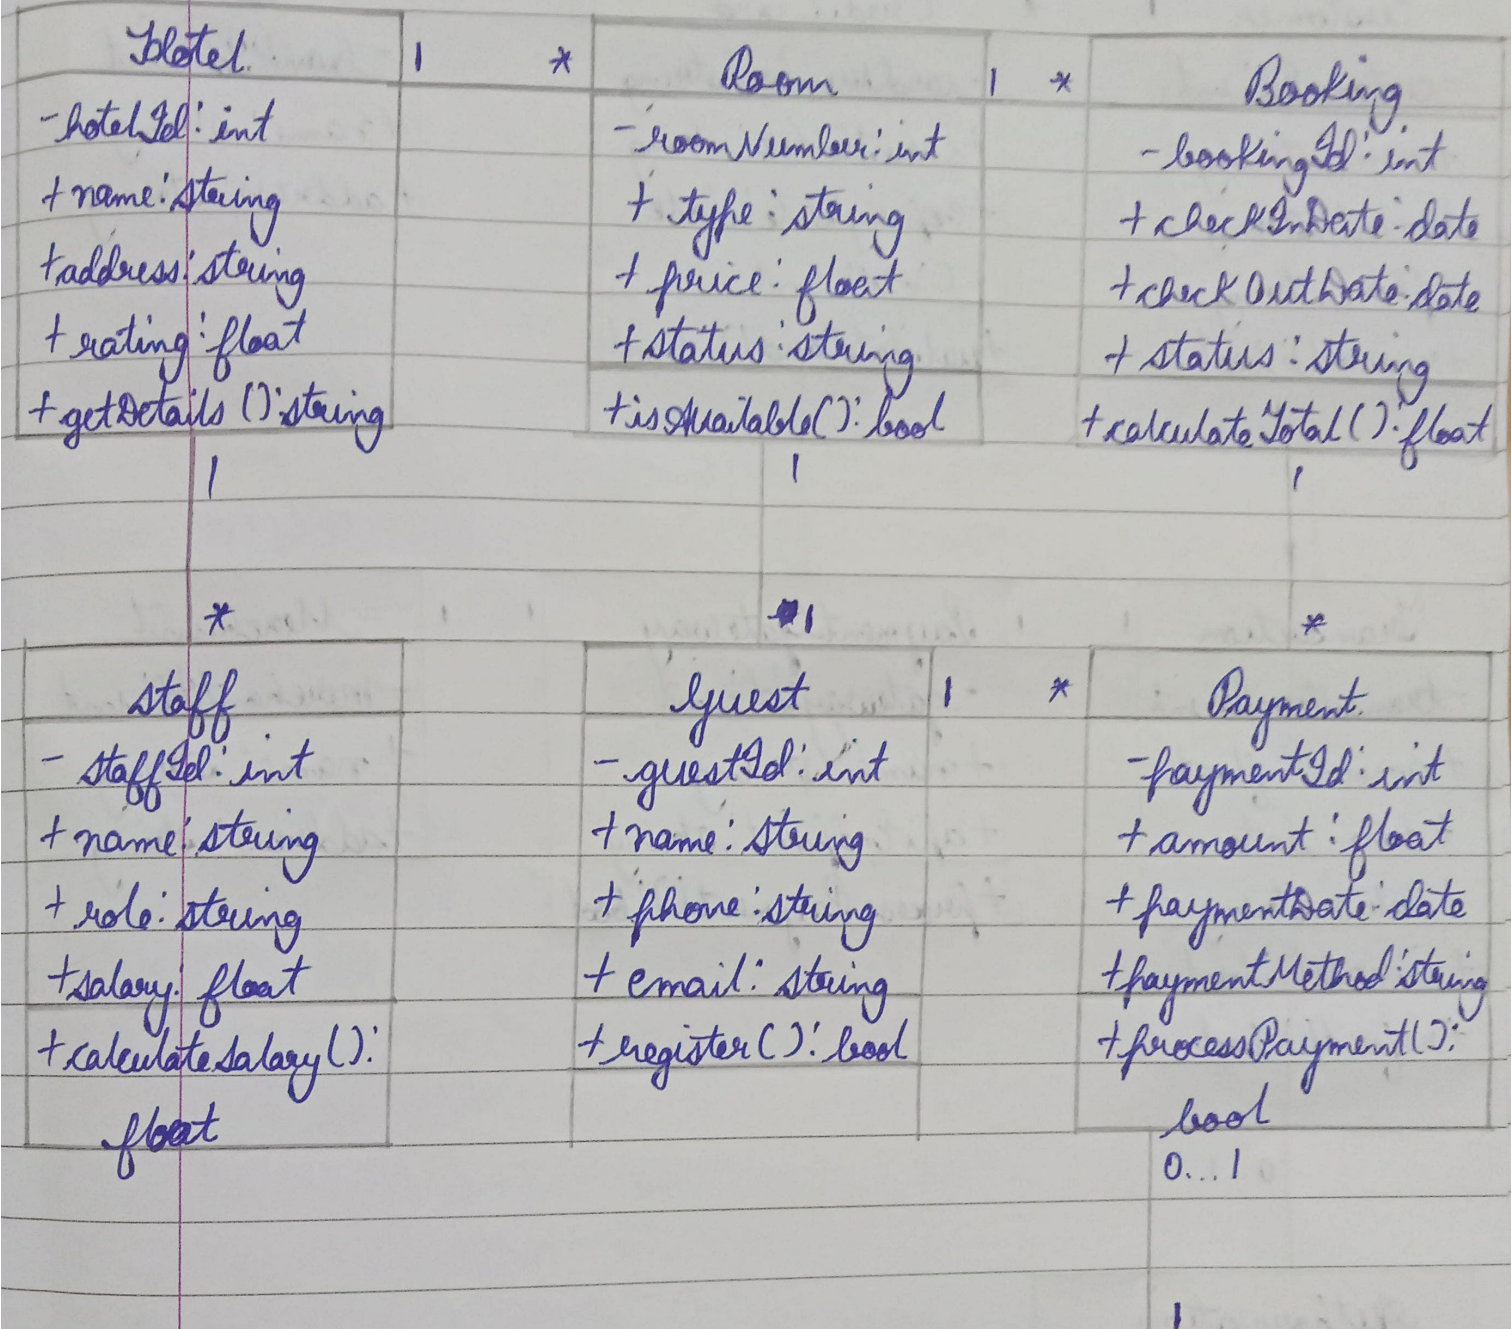 Hotel
- hotelId: int
+ name: string
+ address: string
+ rating: float
+ getDetails(): string
1 *
Room
- roomNumber: int
+ type: string
+ price: float
+ status: string
+ isAvailable(): bool
1 *
Booking
- bookingId: int
+ checkInDate: date
+ checkOutDate: date
+ status: string
+ calculateTotal(): float
1
*
1
1
1
*
Staff
- staffId: int
+ name: string
+ role: string
+ salary: float
+ calculateSalary():
float
Guest
- guestId: int
+ name: string
+ phone: string
+ email: string
+ register(): bool
1 *
Payment
- paymentId: int
+ amount: float
+ paymentDate: date
+ paymentMethod: string
+ processPayment():
bool
0...1
1